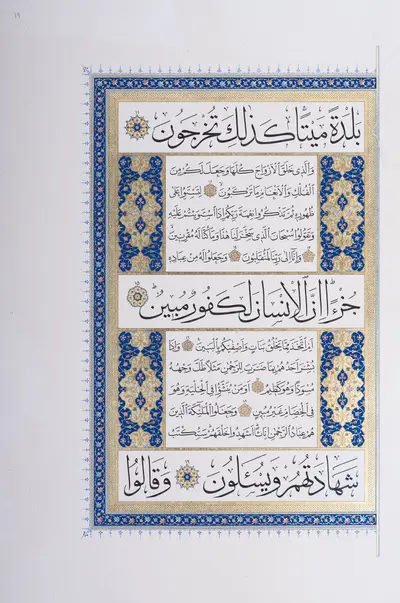 ١٩
بَلْدَةً مَيْتًا كَذٰلِكَ تُخْرَجُونَ
وَالَّذِي خَلَقَ الْاَزْوَاجَ كُلَّهَا وَجَعَلَ لَكُمْ مِنَ
الْفُلْكِ وَالْاَنْعَامِ مَا تَرْكَبُونَ لِتَسْتَوُوا عَلٰى
ظُهُورِهِ ثُمَّ تَذْكُرُوا نِعْمَةَ رَبِّكُمْ اِذَا اسْتَوَيْتُمْ عَلَيْهِ
وَتَقُولُوا سُبْحَانَ الَّذِي سَخَّرَ لَنَا هٰذَا وَمَا كُنَّا لَهُ مُقْرِنِينَ
وَاِنَّا اِلٰى رَبِّنَا لَمُنْقَلِبُونَ وَجَعَلُوا لَهُ مِنْ عِبَادِهِ
جُزْءًا اِنَّ الْاِنْسَانَ لَكَفُورٌ مُبِينٌ
اَمِ اتَّخَذَ مِمَّا يَخْلُقُ بَنَاتٍ وَاَصْفٰيكُمْ بِالْبَنِينَ وَاِذَا
بُشِّرَ اَحَدُهُمْ بِمَا ضَرَبَ لِلرَّحْمٰنِ مَثَلًا ظَلَّ وَجْهُهُ
مُسْوَدًّا وَهُوَ كَظِيمٌ اَوَمَنْ يُنَشَّؤُا فِي الْحِلْيَةِ وَهُوَ
فِي الْخِصَامِ غَيْرُ مُبِينٍ وَجَعَلُوا الْمَلٰئِكَةَ الَّذِينَ
هُمْ عِبَادُ الرَّحْمٰنِ اِنَاثًا اَشَهِدُوا خَلْقَهُمْ سَتُكْتَبُ
شَهَادَتُهُمْ وَيُسْـَٔلُونَ وَقَالُوا